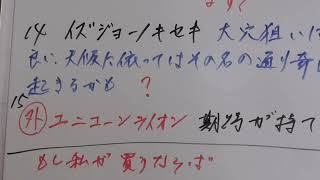 14 イズジョーノキセキ 大穴狙いに
良い、天候に依ってはその名の通り奇
起きるかも ?
15
外 ユニコーンライオン 期待が持て
もし私が買うならば